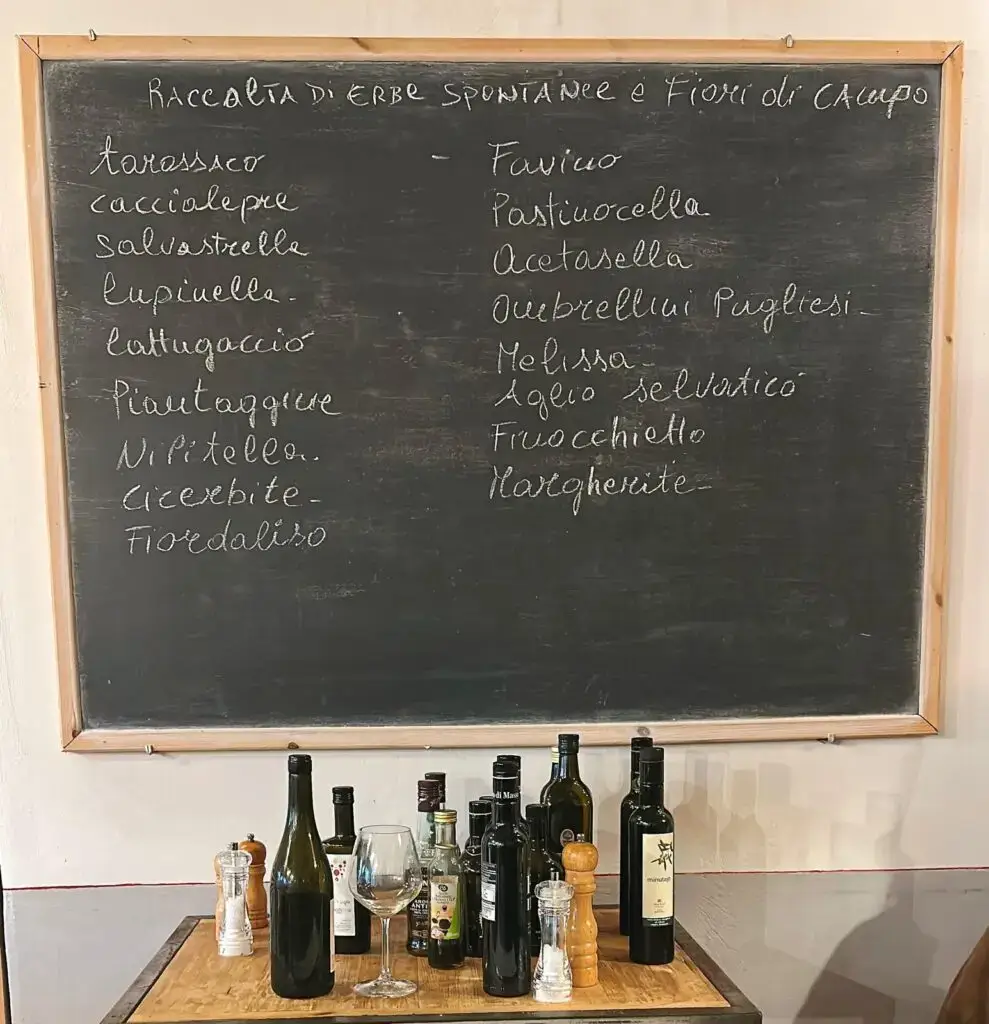 RACCOLTA DI ERBE SPONTANEE e Fiori di CAMPO
tarassaco
caccialepre
Salvastrella
Lupinella-
Lattugaccio
Piantaggine
Nipitella.
Cicerbite-
Fiordaliso
- Favino
Pastinocella
Acetosella
Ombrellini Pugliesi-
Melissa-
Aglio selvatico
Finocchietto
Margherite-
di Mass